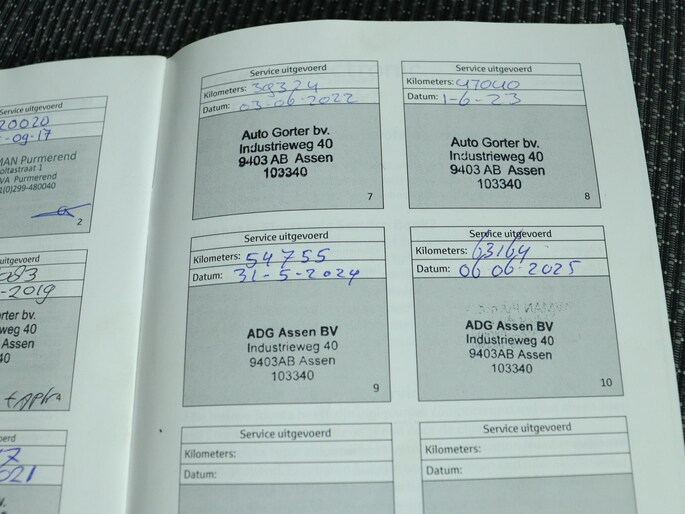 Service uitgevoerd
20020
-09-17
MAN Purmerend
oltastraat 1
VA Purmerend
1(0)299-480040
2
uitgevoerd
-2019
rter bv.
weg 40
Assen
40
oerd
7
021
v.
Service uitgevoerd
Kilometers: 39324
Datum: 03-06-2022
Auto Gorter bv.
Industrieweg 40
9403 AB Assen
103340
7
Service uitgevoerd
Kilometers: 47040
Datum: 1-6-23
Auto Gorter bv.
Industrieweg 40
9403 AB Assen
103340
8
Service uitgevoerd
Kilometers: 54755
Datum: 31-5-2024
ADG Assen BV
Industrieweg 40
9403AB Assen
103340
9
Service uitgevoerd
Kilometers: 63164
Datum: 06 06-2025
ADG Assen BV
Industrieweg 40
9403AB Assen
103340
10
Service uitgevoerd
Kilometers:
Datum:
Service uitgevoerd
Kilometers:
Datum: